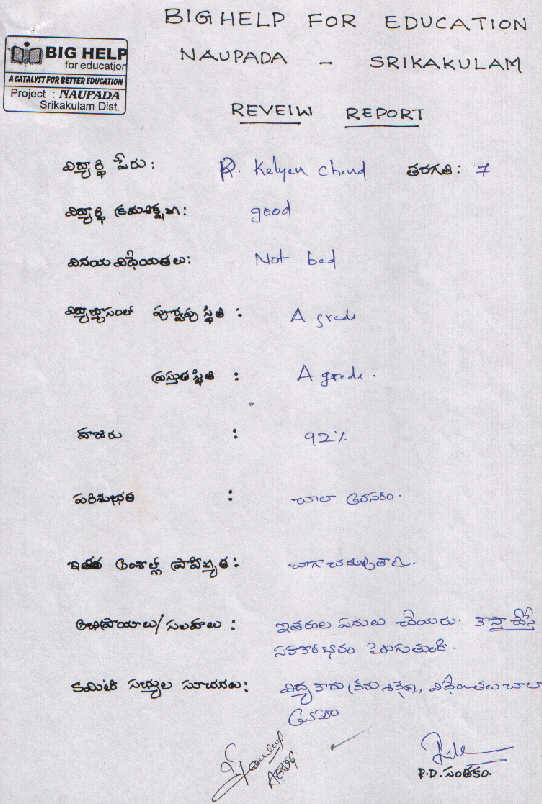 BIG HELP FOR EDUCATION
NAUPADA - SRIKAKULAM
BIG HELP
for education
A CATALYST FOR BETTER EDUCATION
Project : NAUPADA
Srikakulam Dist.
REVEIW REPORT
విద్యార్థి పేరు: R. Kalyan Chand తరగతి: 7
విద్యార్థి క్రమశిక్షణ: good
వినయ విధేయతలు: Not bad
పూర్వపు స్థితి : A grade
ప్రస్తుత స్థితి : A grade.
హాజరు : 92%
పరిశుభ్రత : చాలా అవసరం.
ఇతర అంశాల్లో ప్రావీణ్యత:
అభిప్రాయాలు/సలహాలు : ఇతరుల పనులు చేయరు.
పెరుగుతుంది.
కమిటీ సభ్యుల సూచనలు: చాలా
అవసరం
P.D. సంతకం